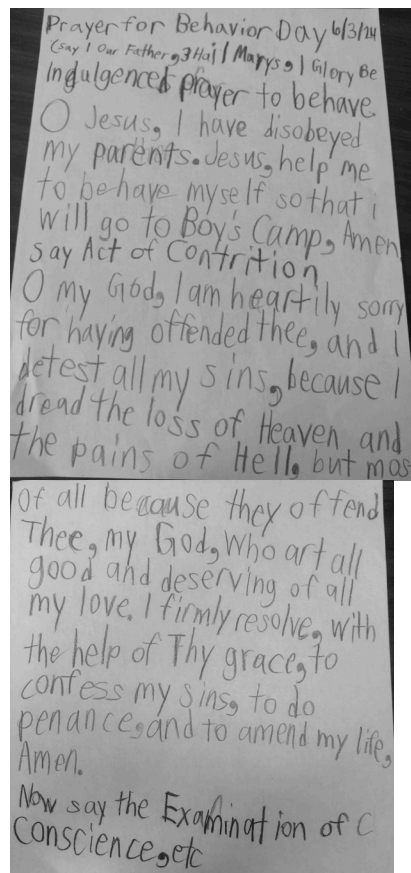 Prayer for Behavior Day 6/3/24
(say 1 Our Father, 3 Hail Marys, 1 Glory Be
Indulgenced prayer to behave.
O Jesus, I have disobeyed
my parents. Jesus, help me
to behave myself so that i
will go to Boy's Camp, Amen
say Act of Contrition
O my God, I am heartily sorry
for having offended thee, and I
detest all my sins, because I
dread the loss of Heaven and
the pains of Hell, but mos
of all because they offend
Thee, my God, Who art all
good and deserving of all
my love. I firmly resolve, with
the help of Thy grace, to
confess my sins, to do
penance, and to amend my life,
Amen.
Now say the Examination of C
Conscience, etc